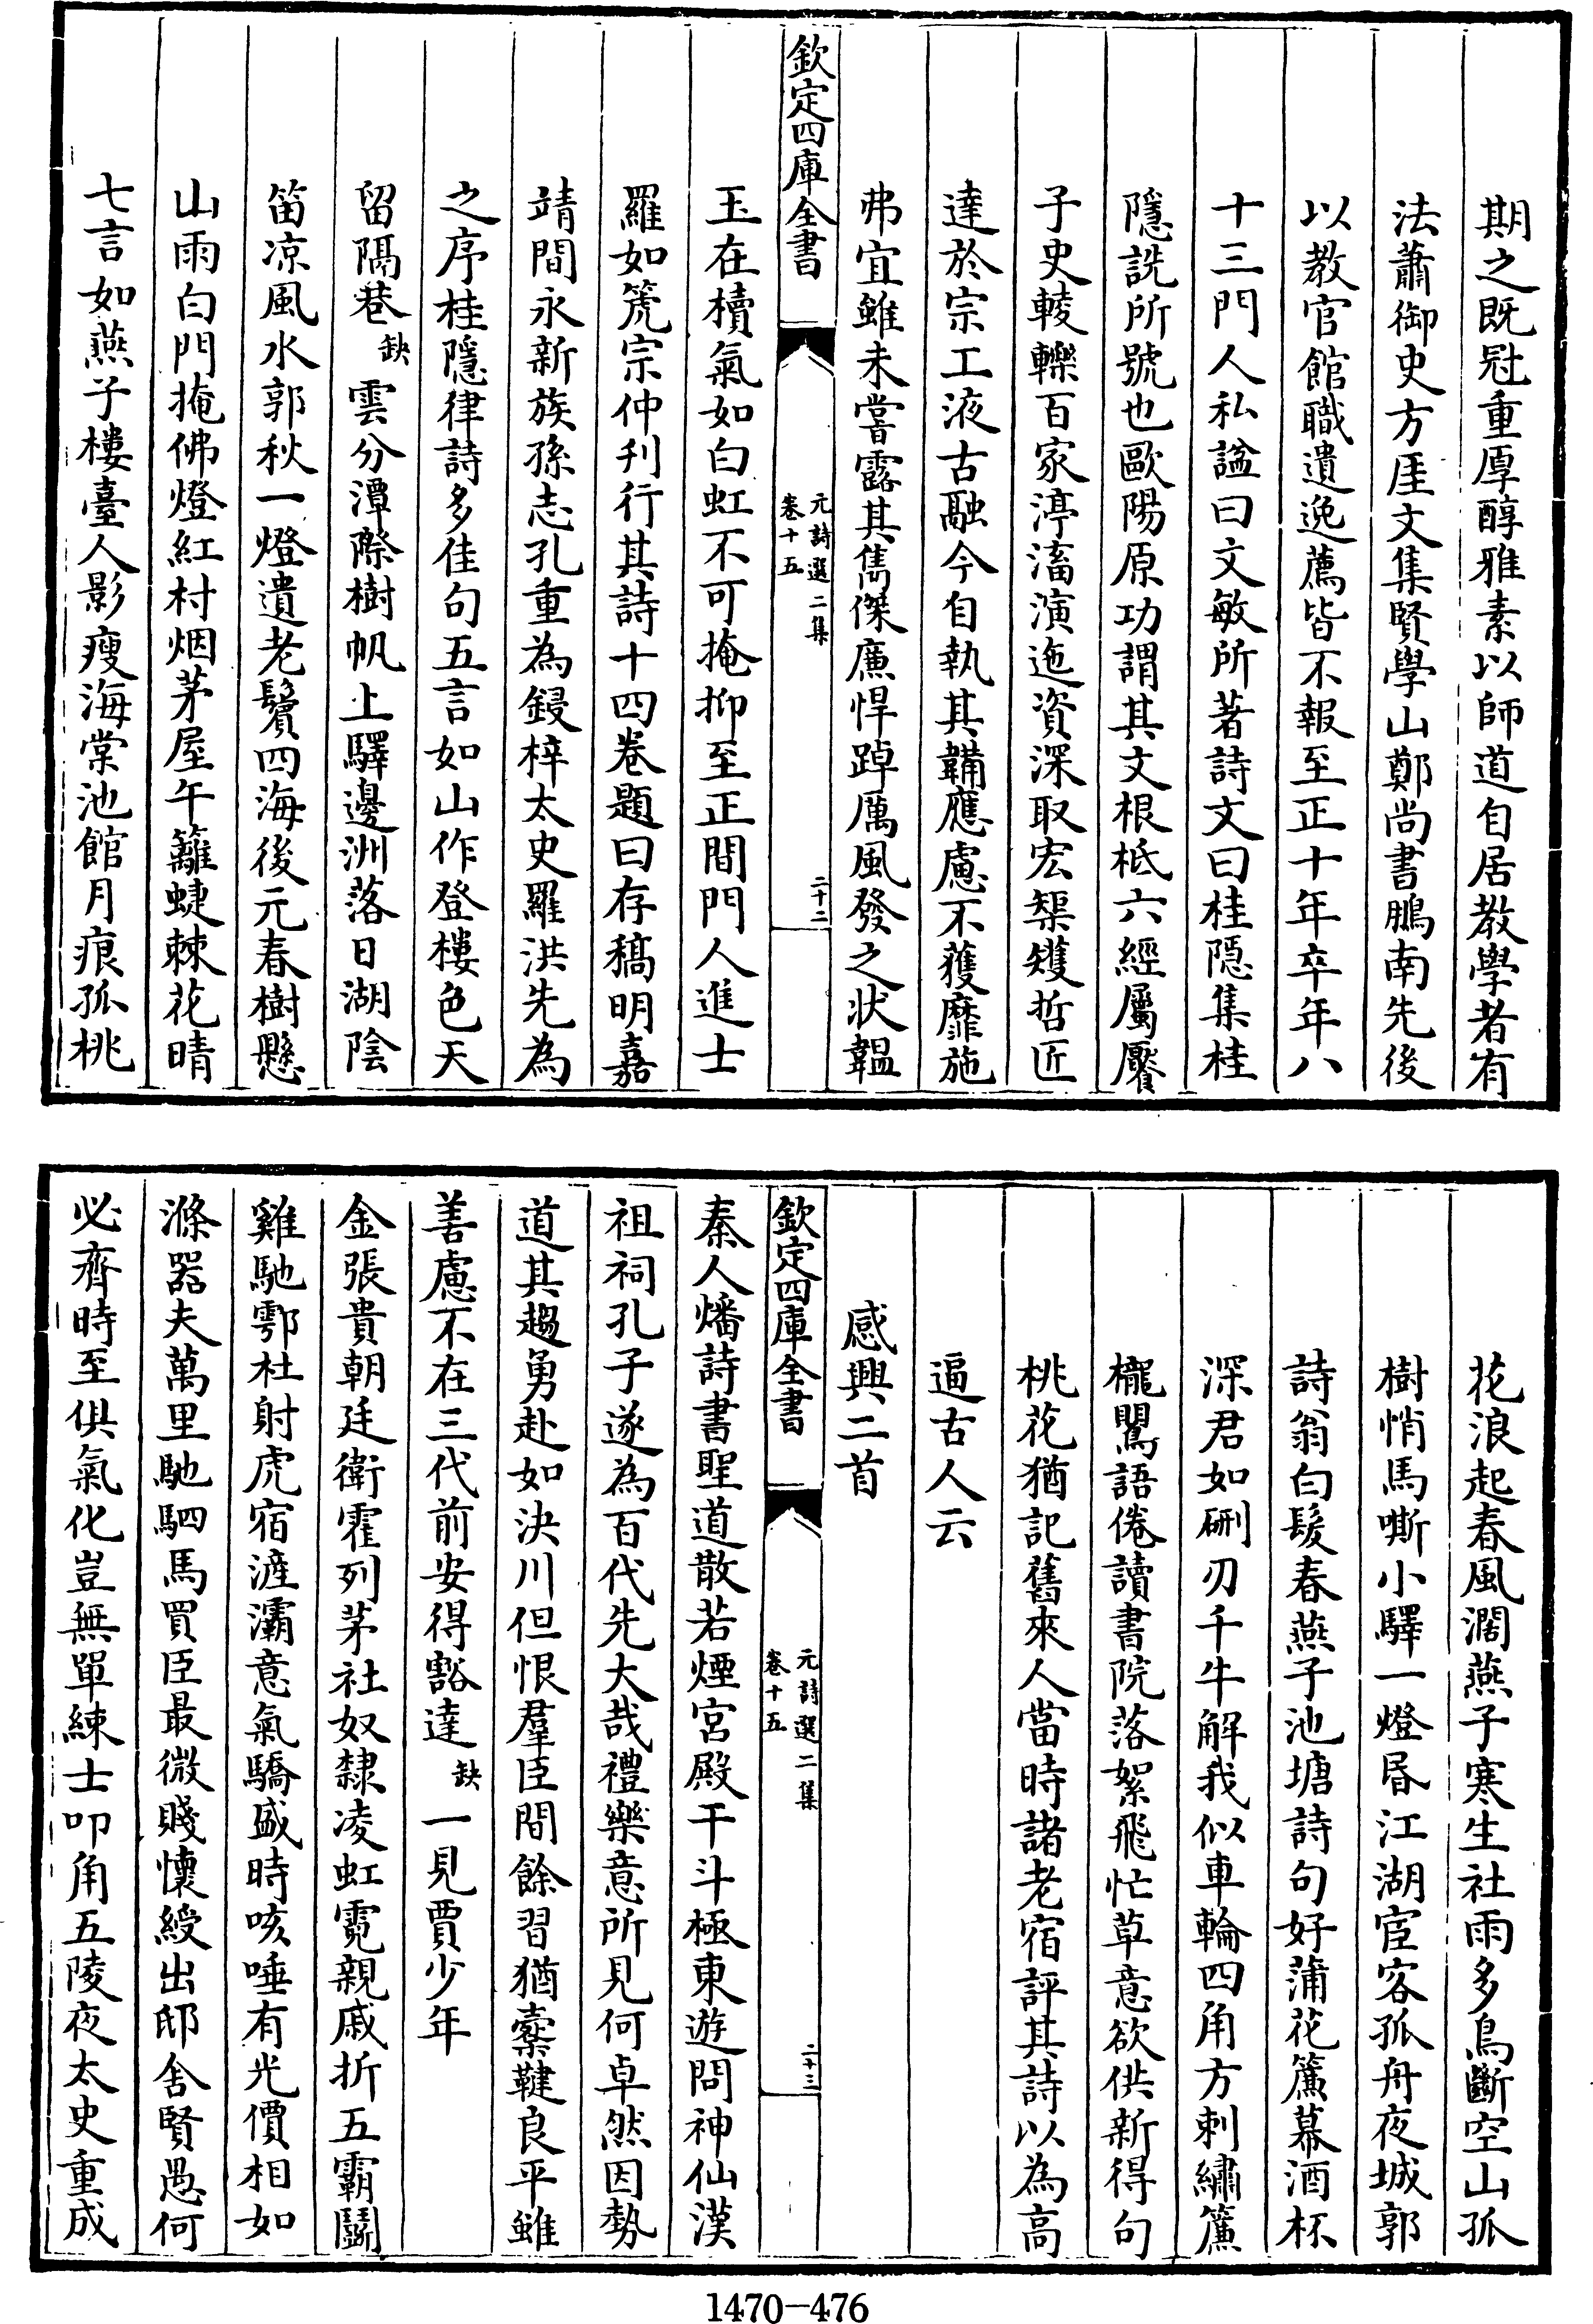 期之既冠重厚醇雅素以師道自居教學者有
法蕭御史方厓文集賢學山鄭尚書鵬南先後
以教官館職遺逸薦皆不報至正十年卒年八
十三門人私諡曰文敏所著詩文曰桂隱集桂
隱詵所號也歐陽原功謂其文根柢六經屬饜
子史輘轢百家渟滀演迤資深取宏榘矱哲匠
達於宗工液古融今自執其韛應慮不獲靡施
弗宜雖未嘗露其雋傑廉悍踔厲風發之狀韞
欽定四庫全書
元詩選二集
卷十五
二十二
玉在櫝氣如白虹不可掩抑至正間門人進士
羅如箎宗仲刋行其詩十四卷題曰存稿明嘉
靖間永新族孫志孔重為鋟梓太史羅洪先為
之序桂隱律詩多佳句五言如山作登樓色天
留隔巷缺雲分潭際樹帆上驛邊洲落日湖陰
笛凉風水郭秋一燈遺老鬢四海後元春樹懸
山雨白門掩佛燈紅村烟茅屋午籬蜨棘花晴
七言如燕子樓臺人影瘦海棠池館月痕孤桃
花浪起春風濶燕子寒生社雨多鳥斷空山孤
樹悄馬嘶小驛一燈昏江湖宦客孤舟夜城郭
詩翁白髮春燕子池塘詩句好蒲花簾幕酒杯
深君如硎刃千牛解我似車輪四角方刺繡簾
櫳鸎語倦讀書院落絮飛忙草意欲供新得句
桃花猶記舊來人當時諸老宿評其詩以為高
逼古人云
感興二首
欽定四庫全書
元詩選二集
卷十五
二十三
秦人燔詩書聖道散若煙宮殿干斗極東遊問神仙漢
祖祠孔子遂為百代先大哉禮樂意所見何卓然因勢
道其趨勇赴如決川但恨羣臣間餘習猶櫜鞬良平雖
善慮不在三代前安得豁達缺一見賈少年
金張貴朝廷衛霍列茅社奴隸凌虹霓親戚折五霸鬭
雞馳鄠杜射虎宿滻灞意氣驕盛時咳唾有光價相如
滌器夫萬里馳駟馬買臣最微賤懷綬出邸舍賢愚何
必齊時至俱氣化豈無單練士叩角五陵夜太史重成
1470—476